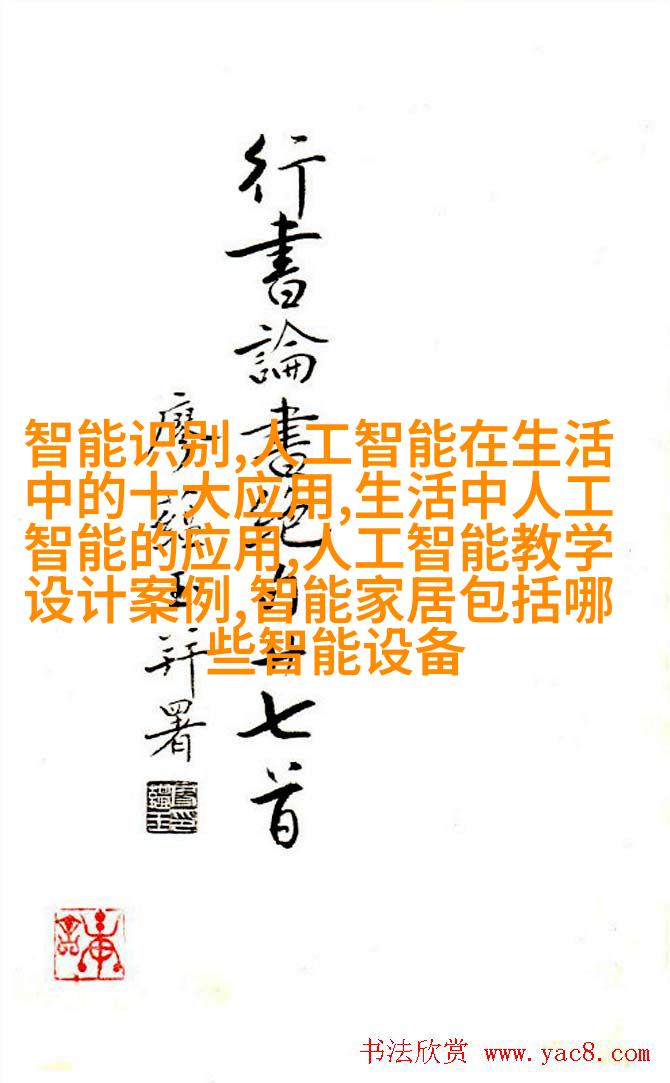 行書論書絶句廿七首
廖蘊玉并署
智能识别,人工智能在生活
中的十大应用,生活中人工
智能的应用,人工智能教学
设计案例,智能家居包括哪
些智能设备
书法欣赏 www.yac8.com